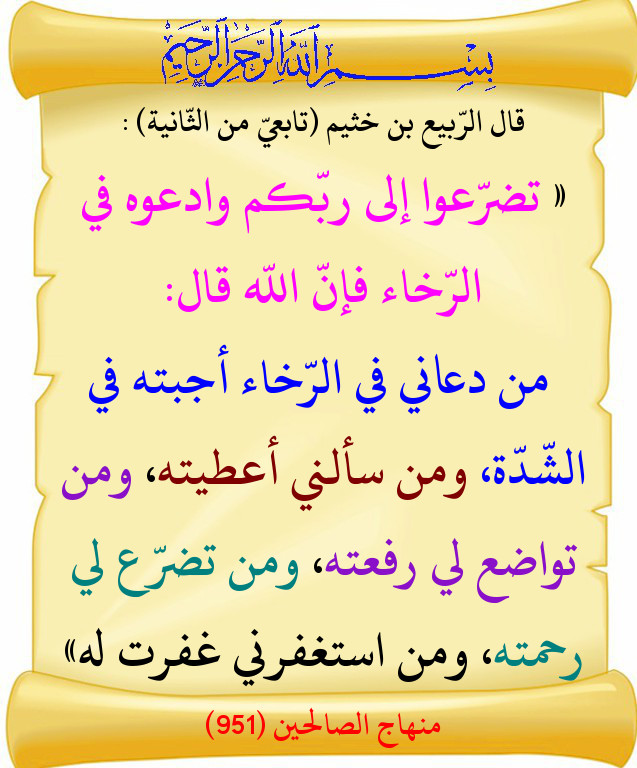 بِسْمِ اللَّهِ الرَّحْمَٰنِ الرَّحِيمِ
قال الرّبيع بن خثيم (تابعيّ من الثّانية) :
« تضرّعوا إلى ربّكم وادعوه في
الرّخاء فإنّ اللّه قال:
من دعاني في الرّخاء أجبته في
الشّدّة، ومن سألني أعطيته، ومن
تواضع لي رفعته، ومن تضرّع لي
رحمته، ومن استغفرني غفرت له»
منهاج الصالحين (951)